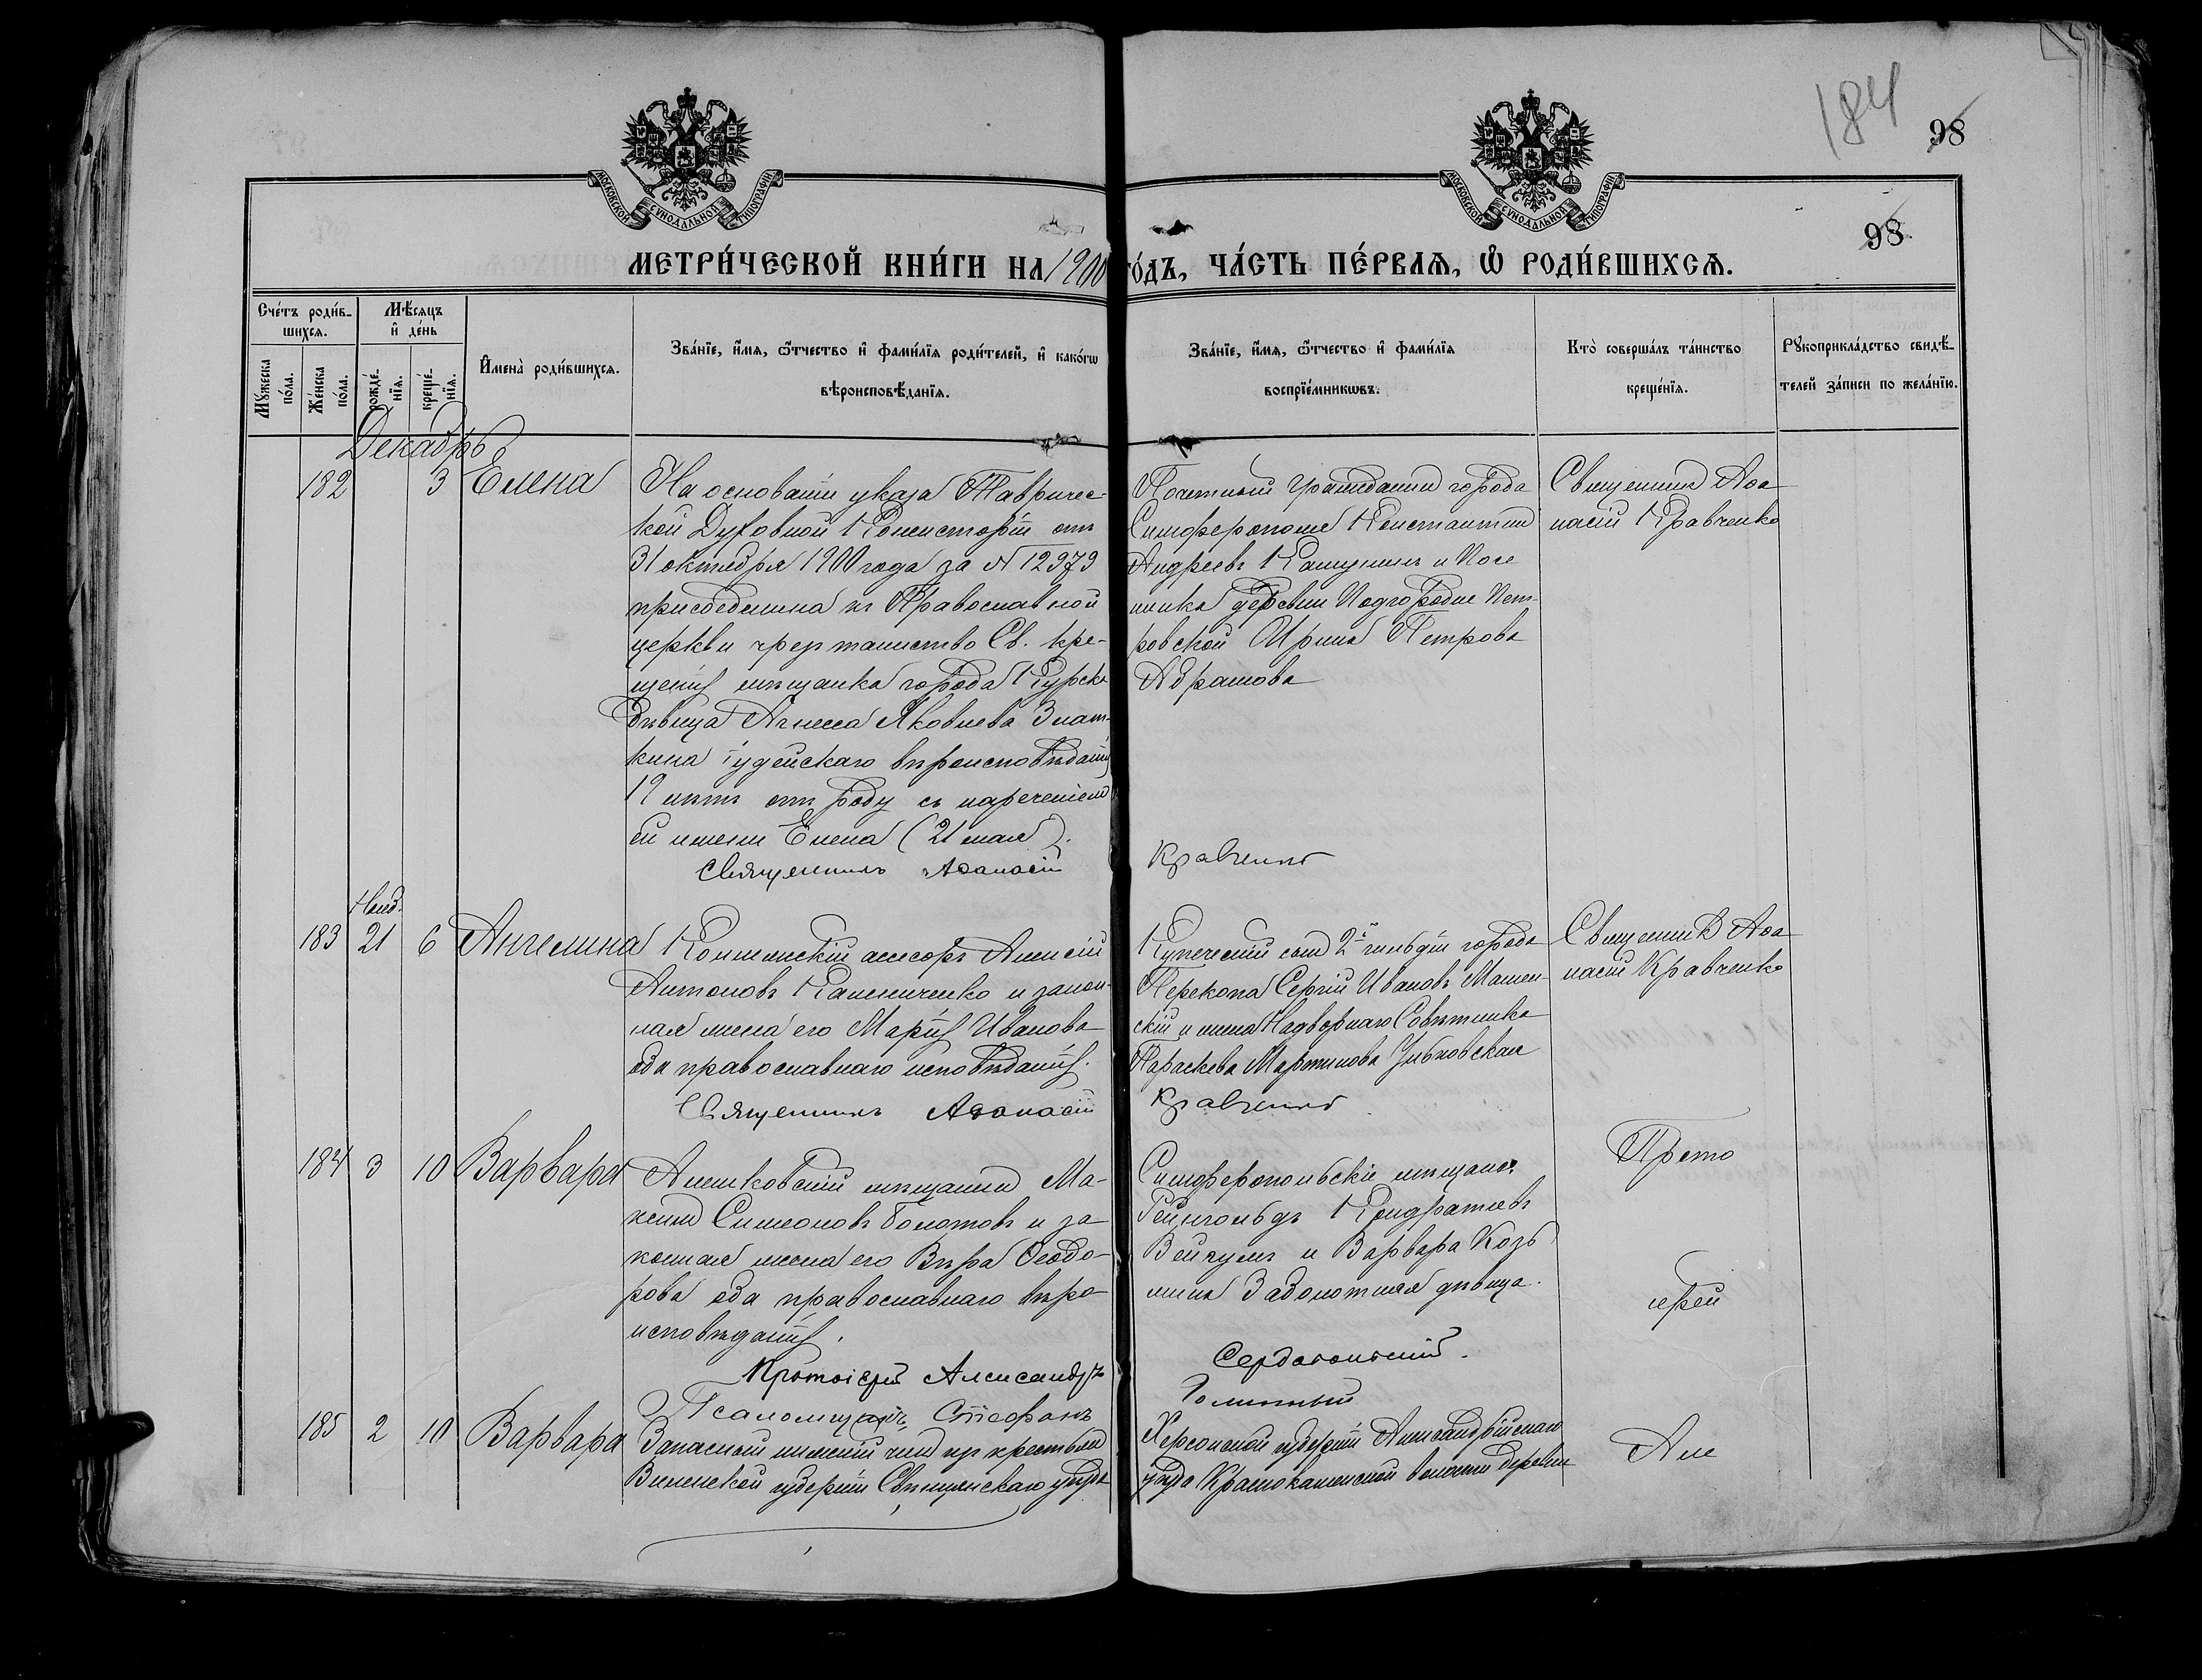 184
98
МОСКОВСКОЙ СѴНОДАЛЬНОЙ ТИПОГРАФІИ
МОСКОВСКОЙ СѴНОДАЛЬНОЙ ТИПОГРАФІИ
98
МЕТРИ́ЧЕСКОЙ КНИ́ГИ НА 1900 ГО́ДЪ, ЧА́СТЬ ПЕ́РВАѦ, Ѡ҆ РОДИ́ВШИХСѦ.
Сче́тъ роди́в-
шихсѧ.
Мꙋ́жеска
по́ла.
Же́нска
по́ла.
Мѣ́сѧцъ
и҆ де́нь
рожде́-
нїѧ.
креще́-
нїѧ.
И҆мена̀ роди́вшихсѧ.
Зва́нїе, и҆́мѧ, ѻ҆́тчество и҆ фами́лїѧ роди́телей, и҆ како́гѡ
вѣроисповѣ́данїѧ.
Зва́нїе, и҆́мѧ, ѻ҆́тчество и҆ фами́лїѧ
воспрїе́мникѡвъ.
Кто̀ соверша́лъ та́инство
креще́нїѧ.
Рꙋкоприкла́дство свидѣ́-
телей за́писи по жела́нїю.
Декабрь
182
3
Елена
На основаніи указа Тавричес-
кой Духовной Консисторіи отъ
31 октября 1900 года за № 12979
присоединена къ Православной
церкви чрезъ таинство Св. кре-
щенія мѣщанка города Курска
дѣвица Агнесса Яковлева Злат-
кина іудейскаго вѣроисповѣданія
19 лѣтъ отъ роду съ нареченіемъ
ей имени Елена (21 мая).
Священникъ Аѳанасій Кравченко
Почетный гражданинъ города
Симферополя Константинъ
Андреевъ и Посе
лянка деревни Подгородне Пет-
ровской Ирина Петрова
Абрамова
Священникъ Аѳа
насій Кравченко
183
Нояб.
21
6
Ангелина
Коллежскій ассесоръ Алексій
Антоновъ Калениченко и закон-
ная жена его Марія Иванова
оба православнаго исповѣданія.
Священникъ Аѳанасій Кравченко
Купеческій сынъ 2й гильдіи города
Перекопа Сергій Ивановъ
скій и жена Надворнаго Совѣтника
Параскева Мартинова
Священникъ Аѳа
насій Кравченко
184
3
10
Варвара
Алешковскій мѣщанинъ Ма-
ксимъ Симеоновъ Болотовъ и за
конная жена его Вѣра Ѳеодо-
рова оба православнаго вѣро
исповѣданія.
Протоіерей Александръ Сердобольскій.
Псаломщикъ Стефанъ
Симферопольскіе мѣщане:
Рейнгольдъ Кондратьевъ
и Варвара Козь
мина Заболотная дѣвица.
Прото
іерей
185
2
10
Варвара
Запасный нижній чинъ изъ крестьянъ
Виленской губерніи Свѣнцянскаго уѣзда
Херсонской губерніи Александрійскаго
уѣзда Краснокаменской волости деревни
Але